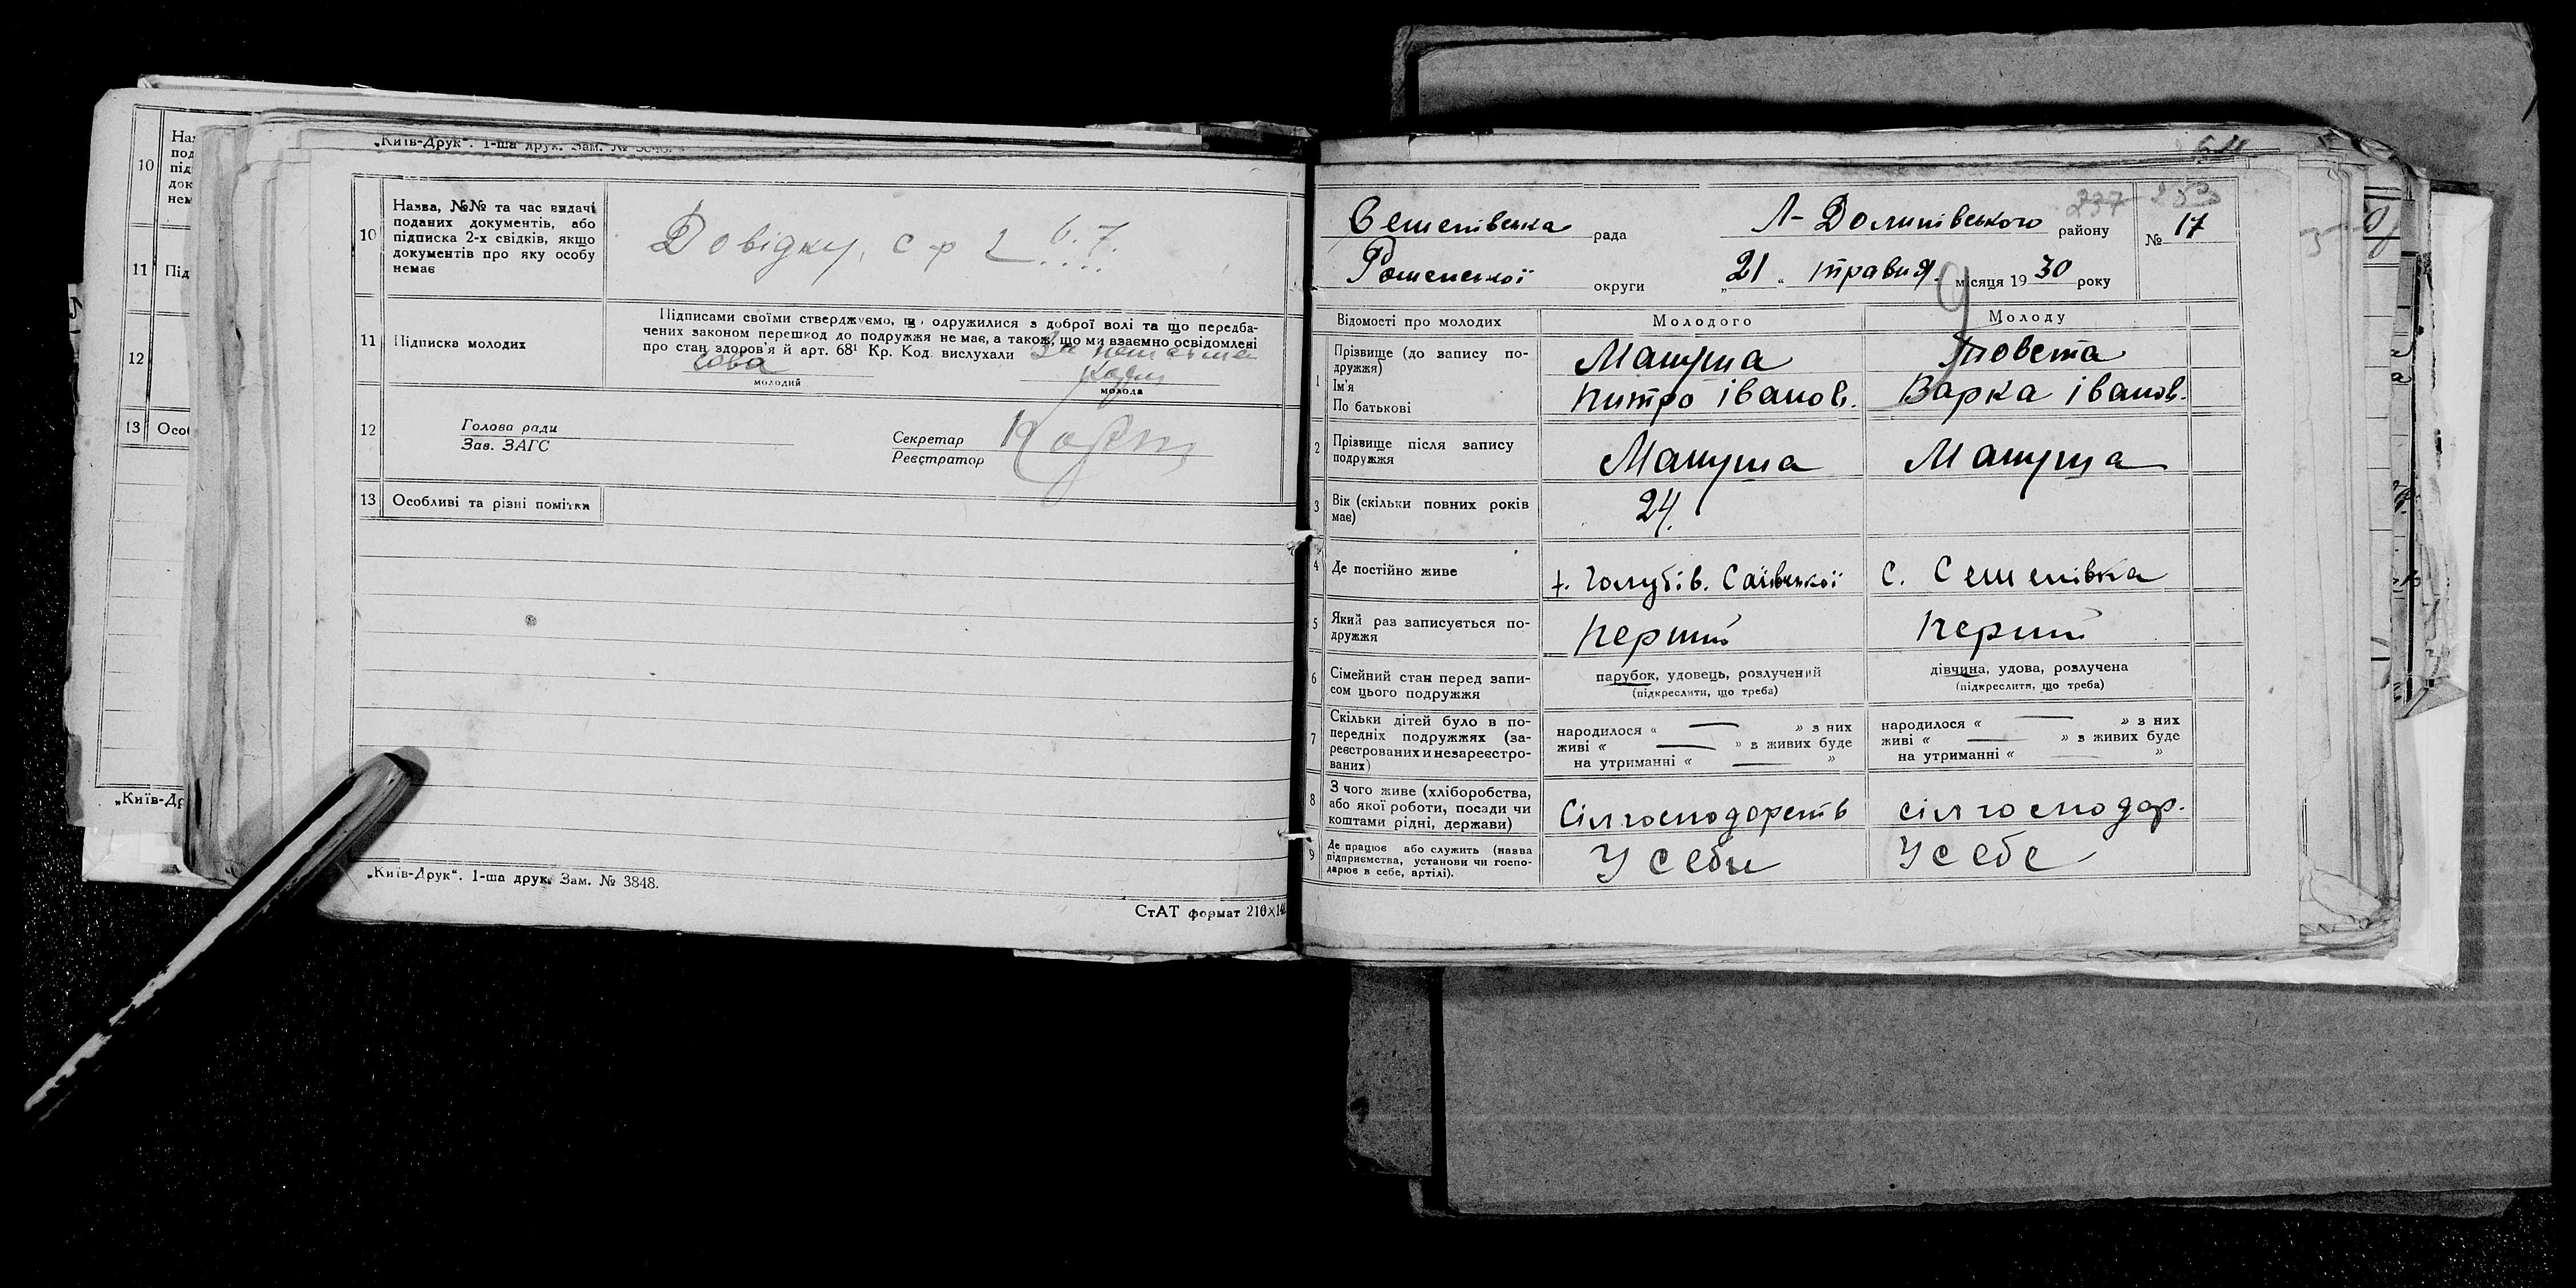 10
11
12
13
„Київ-Др
„Київ-Друк“. 1-ша друк. Зам. № 3848.
10 Назва, №№ та час видачі поданих документів, або підписка 2-х свідків, якщо документів про яку особу немає
Довідку, с р
11 Підписка молодих
Підписами своїми стверджуємо, що одружилися з доброї волі та що передба-
чених законом перешкод до подружжя немає, а також, що ми взаємно освідомлені
про стан здоров'я й арт. 68¹ Кр. Код. вислухали
молодий
молода
12
Голова ради
Зав. ЗАГС
Секретар
Реєстратор
13 Особливі та різні помітки
„Київ-Друк“. 1-ша друк. Зам. № 3848.
СтАТ формат 210×14
237 253
Семенівська рада Л-Долинівського району № 17
Роменської округи „21“ травня місяця 1930 року
Відомості про молодих Молодого Молоду
1 Прізвище (до запису по-
дружжя)
Ім'я
По батькові
Мацупа
Питро іванов.
Варка іванов.
2 Прізвище після запису
подружжя
Мацупа Мацупа
3 Вік (скільки повних років
має)
24
4 Де постійно живе
х. Голубів. Саївської с. Семенівка
5 Який раз записується по-
дружжя
перший перший
6 Сімейний стан перед запи-
сом цього подружжя
парубок, удовець, розлучений
(підкреслити, що треба)
дівчина, удова, розлучена
(підкреслити, що треба)
7 Скільки дітей було в по-
передніх подружжях (за-
реєстрованих и незареєстро-
ваних)
народилося « — » з них
живі « — » з живих буде
на утриманні « — »
народилося « — » з них
живі « — » з живих буде
на утриманні « — »
8 З чого живе (хліборобства,
або якої роботи, посади чи
коштами рідні, держави)
Сілгосподорств сілгосподор.
9 Де працює або служить (назва
підприємства, установи чи госпо-
дарює в себе, артілі).
У себе У себе